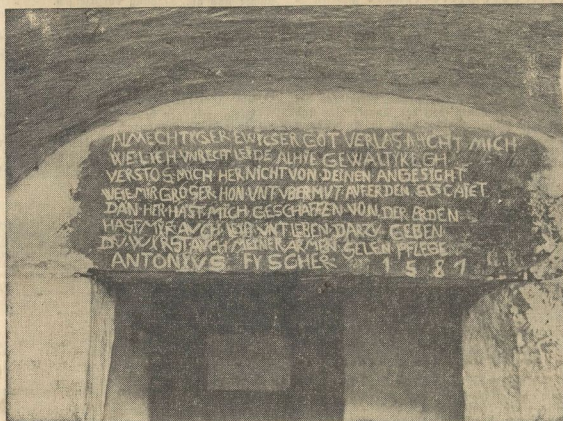 ALMECHTIGER EWIGSER GOT VERLAS NICHT MICH
WEIL ICH VNRECHT LEIDE ALHIE GEWALTYKLICH
VERSTOS MICH HER NICHT VON DEINEN ANGESICHT
WEIL MIR GROSER HON VNT VBERMVT AVF ERDEN
DAN HER HAST MICH GESCHAFFEN VON DER ERDEN
HAST MIR AVCH LEIB VNT LEBEN DARZV GEBEN
DV WIRST AVCH MEINER ARMEN SELEN PFLEGE
ANTONIVS FYSCHER 1581